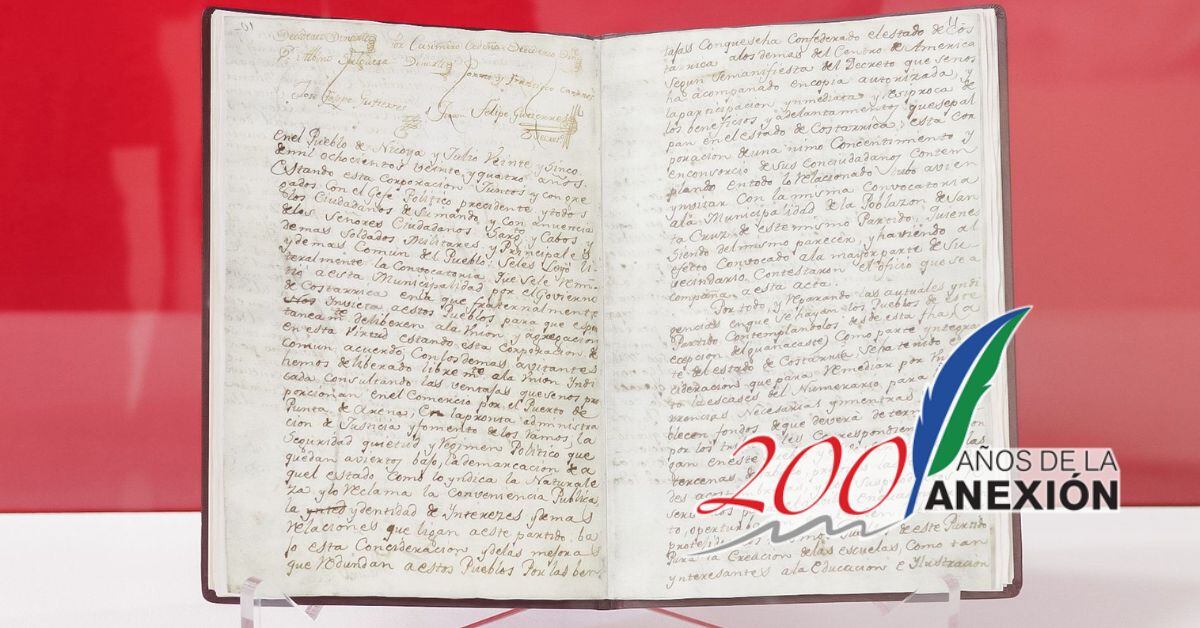 Por Casimiro
Albino
Ramos y Francisco
José Felipe Gutierres
Juan Felipe Gutierres
En el Pueblo de Nicoya y Julio Veinte y Sinco
de mil ochocientos veinte y quatro años.
Estando esta corporacion Juntos y con gre
gados Con el Gefe Politico presidente y todos
los Ciudadanos de Sumando y Con anuencia
delos Señores Ciudadanos Sarg. y Cabos y
demas Soldados Militares, y Principales
y demas Comun del Pueblo, Seles Leyó li
teralmente la Convocatoria que Sele
aesta Municipalidad por el Govierno
de Costarrica enla que fraternalmente
los Invita aestos Pueblos para que espon
taneam.te deliberen ala Union y agregacion
en esta Virtud estando esta Corporacion de
Comun acuerdo, Con los demas avitantes
hemos deliberado libre m.te ala Union Indi
cada Consultando las ventajas que nos pro
porcionan en el Comercio por el Puerto de
Punta de Arenas; En la pronta administra
cion de Justicia y fomento de los ramos, la
Seguridad quietud y Regimen Politico que
quedan aviertos bajo la demarcacion de a
quel estado Como lo yndica la Naturale
za y lo Reclama la Conveniencia Publica
la ydentidad de Interezes y demas
Relaciones que ligan aeste partido. ba
jo esta Concideracion y delas mejoras
que Redundan a estos Pueblos Por las ben
tajas Conque se ha Confederado el estado de Cos
tarrica alos demas del Centro de America
Segun Semanifiesta del Decreto que senos
ha acompañado en copia autorizada, y
la participacion ynmediata y reciproca de
los beneficios y adelantamientos que sepal
pan en el estado de Costarrica; esta Cor
poracion de una nimo Concentimiento y
en consorcio de Sus Conciudadanos Contem
plando en todo lo Relacionado tubo avien
ynvitar Con la misma Convocatoria
ala Municipalidad de la Poblazon de San
ta Cruz de este mismo Partido, quienes
Siendo del mismo parecer y haviendo al
efecto Convocado ala mayor parte de Su
vecindario, Contestaron el oficio que se a
compaña aesta acta.
Por todo, y Reparando las actuales yndi
gencias en que se hayan los Pueblos de este
Partido Contemplandolos desde esta fha (a
ecepcion del guanacaste) Como parte yntegran
te del estado de Costarrica Seha tenido en con
cideracion que para Remediar por
to la escases del Numerario, para
Necesarias y mientras
blecen fondos de que deverá de
por los
gan en este
tercenas
des
to,
Para la Creacion de las escuelas, Como tan
ynteresantes ala Educacion e Ilustracion
200 AÑOS DE LA
ANEXIÓN